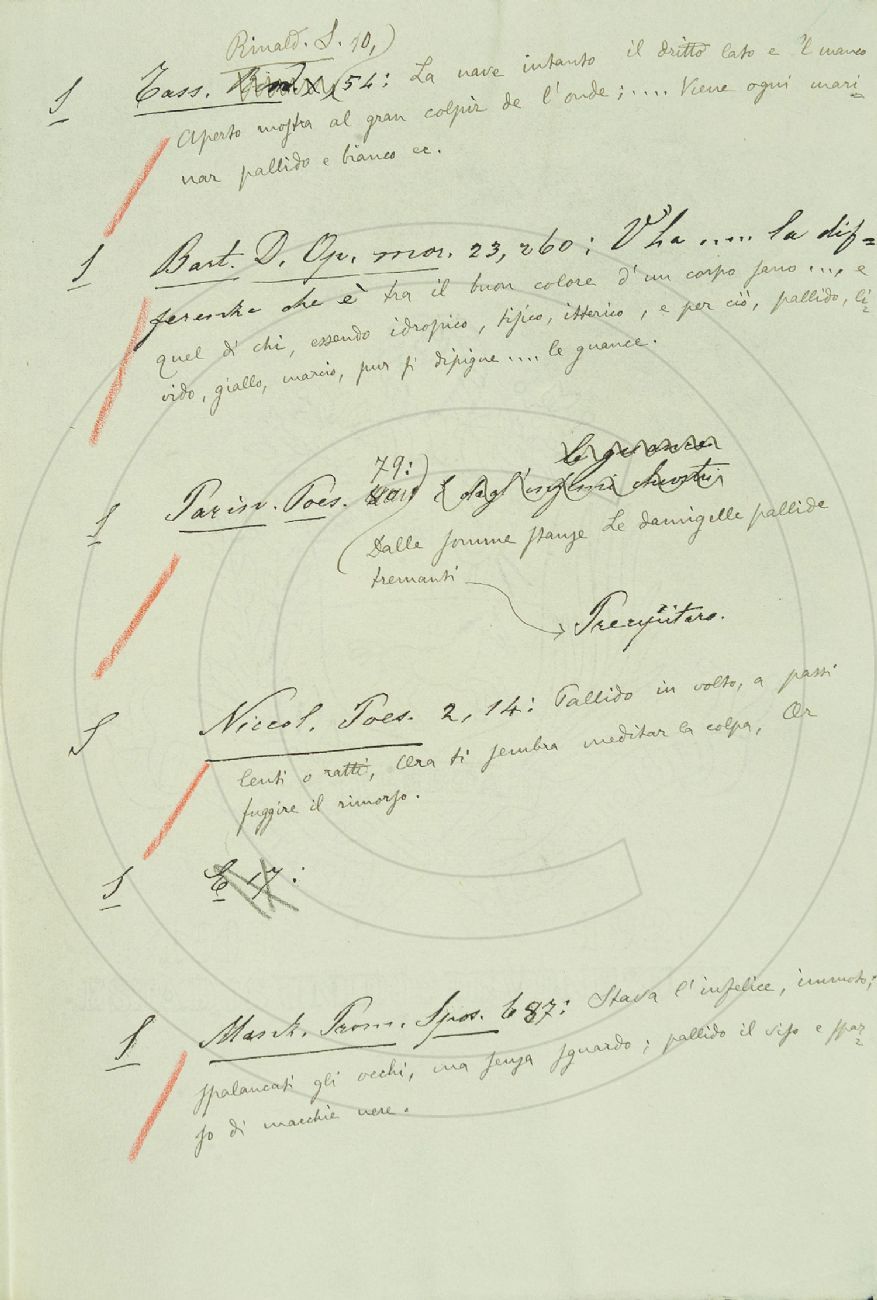 Rinald. S. 10,)
§ Tass. 54: La nave intanto il dritto lato e 'l manco
Aperto mostra al gran colpir de l'onde; .... Viene ogni mari=
nar pallido e bianco ec.
§ Bart. D. Op. mor. 23, 260: V'ha ..... la dif=
ferenza che è tra il buon colore d'un corpo sano ..., e
quel di chi, essendo idropico, tisico, itterico, e per ciò, pallido, li=
vido, giallo, marcio, pur si dipigne .... le guance.
le guance
§ Parin. Poes. 79: degl'ingegni
Dalle somme stanze Le damigelle pallide
tremanti
Precipitaro.
§ Niccol. Poes. 2, 14: Pallido in volto, a passi
lenti o ratti, Ora ti sembra meditar la colpa, Or
fuggire il rimorso.
§ E 17:
§ Manz. Prom. Spos. 687: Stava l'infelice, immoto;
spalancati gli occhi, ma senza sguardo; pallido il viso e spar=
so di macchie nere.